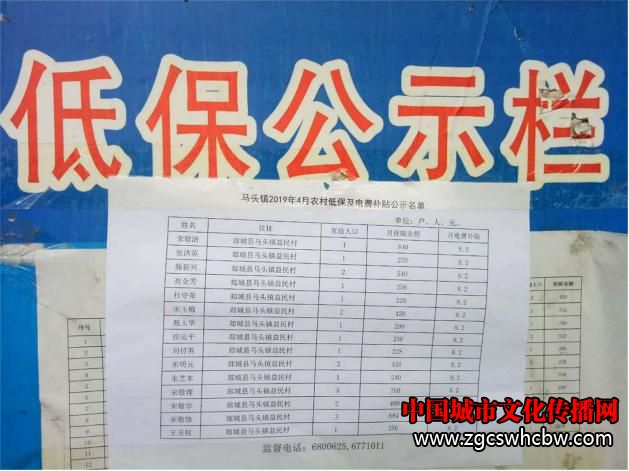 低保公示栏
马头镇2019年4月农村低保及电费补贴公示名单
单位：户、人、元
姓名 住址 家庭人口 月保障金额 月电费补贴
宋敬清 郯城县马头镇益民村 4 840 8.2
张洪英 郯城县马头镇益民村 1 270 8.2
滕新兴 郯城县马头镇益民村 2 540 8.2
高金芳 郯城县马头镇益民村 1 256 8.2
杜守荣 郯城县马头镇益民村 1 228 8.2
宋玉梅 郯城县马头镇益民村 2 420 8.2
戴玉华 郯城县马头镇益民村 1 290 8.2
徐运平 郯城县马头镇益民村 1 256 8.2
刘付英 郯城县马头镇益民村 1 228 8.2
宋明元 郯城县马头镇益民村 2 456 8.2
朱芝本 郯城县马头镇益民村 1 240 8.2
宋敬辉 郯城县马头镇益民村 3 768 8.2
宋敬学 郯城县马头镇益民村 2 480
宋敬修 郯城县马头镇益民村 3 684
王玉权 郯城县马头镇益民村 1 256
监督电话：6800625,6771011
序号
1
2
3
4
5
6
7
8
9
10
11
12
人口 保障金额
中国城市文化传播网
www.zgcswhcbw.com